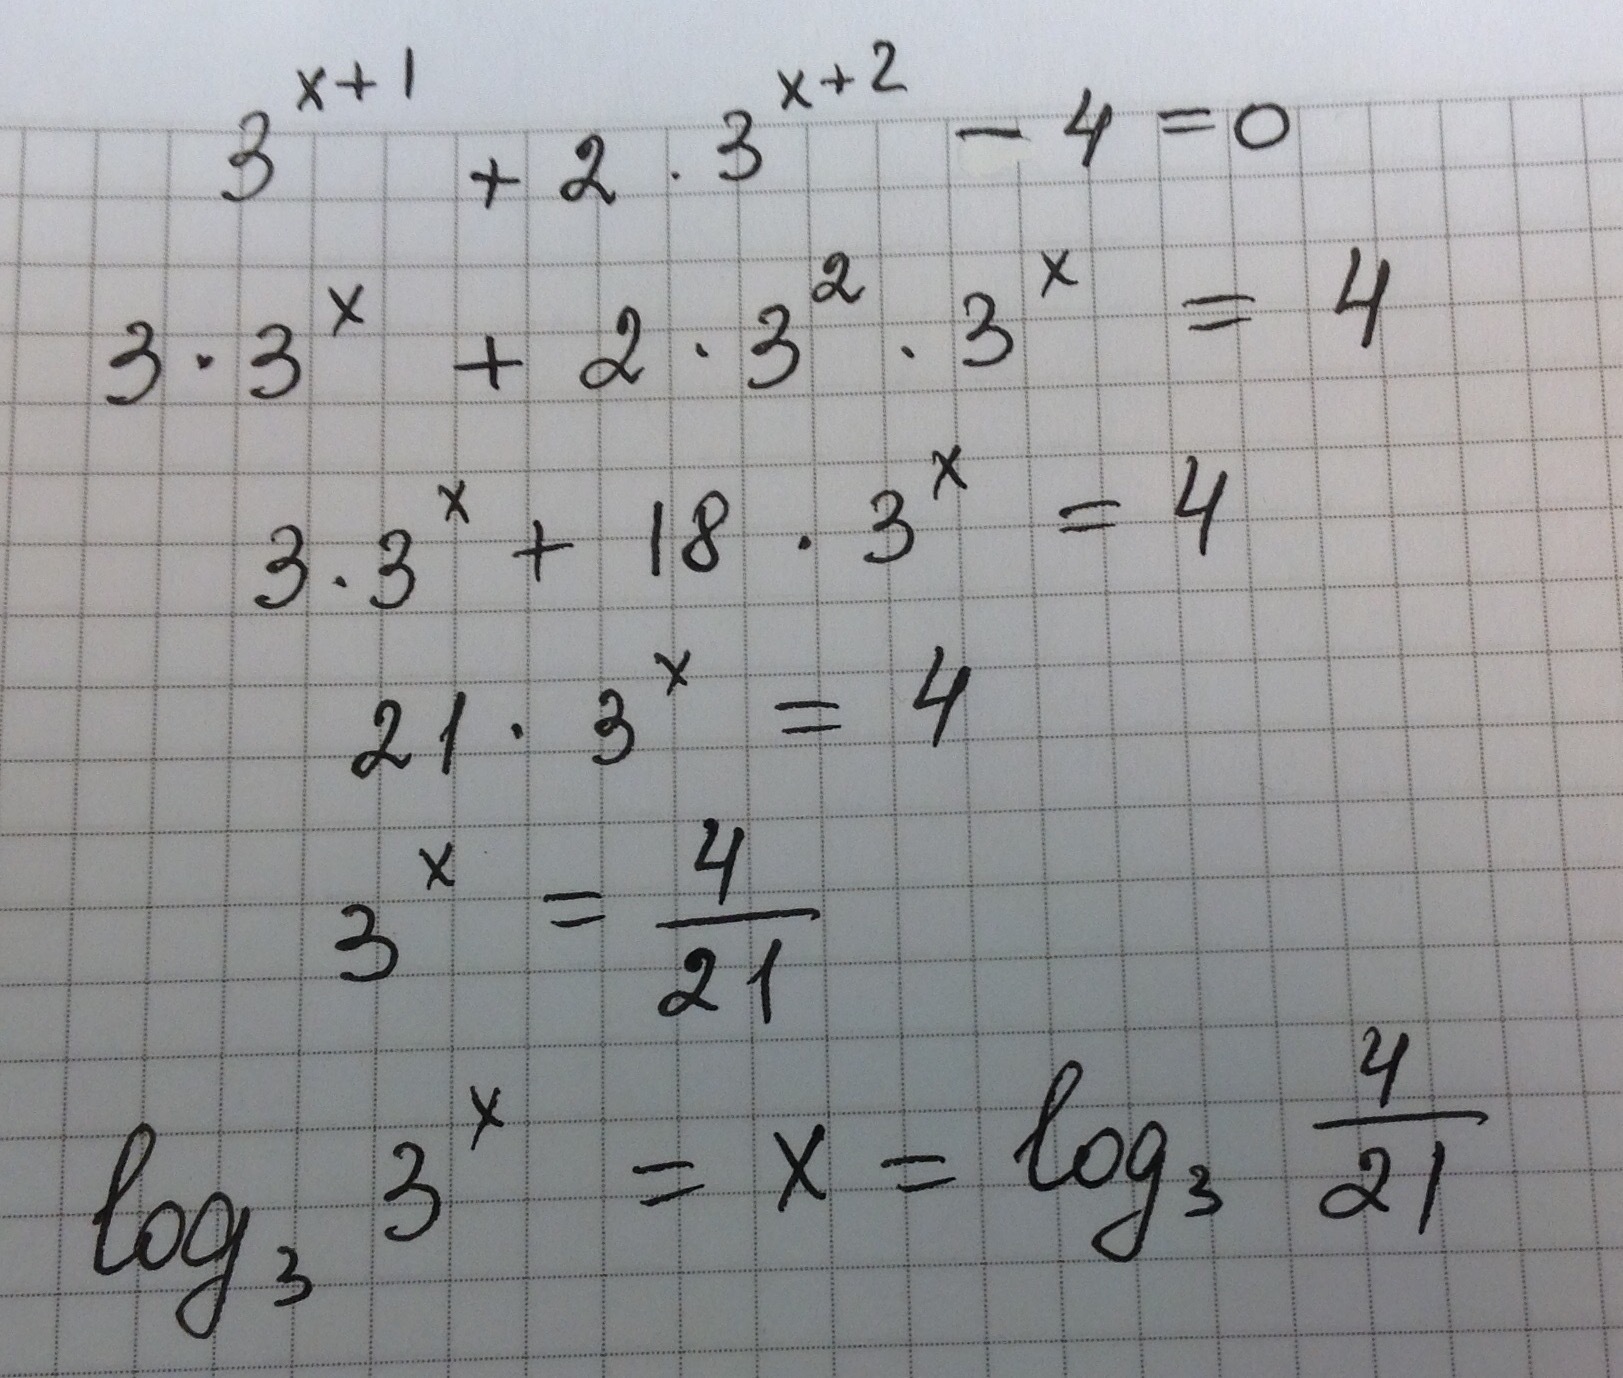 3^{x+1} + 2 · 3^{x+2} − 4 = 0
3 · 3^x + 2 · 3^2 · 3^x = 4
3 · 3^x + 18 · 3^x = 4
21 · 3^x = 4
3^x = \frac{4}{21}
log_3 3^x = x = log_3 \frac{4}{21}